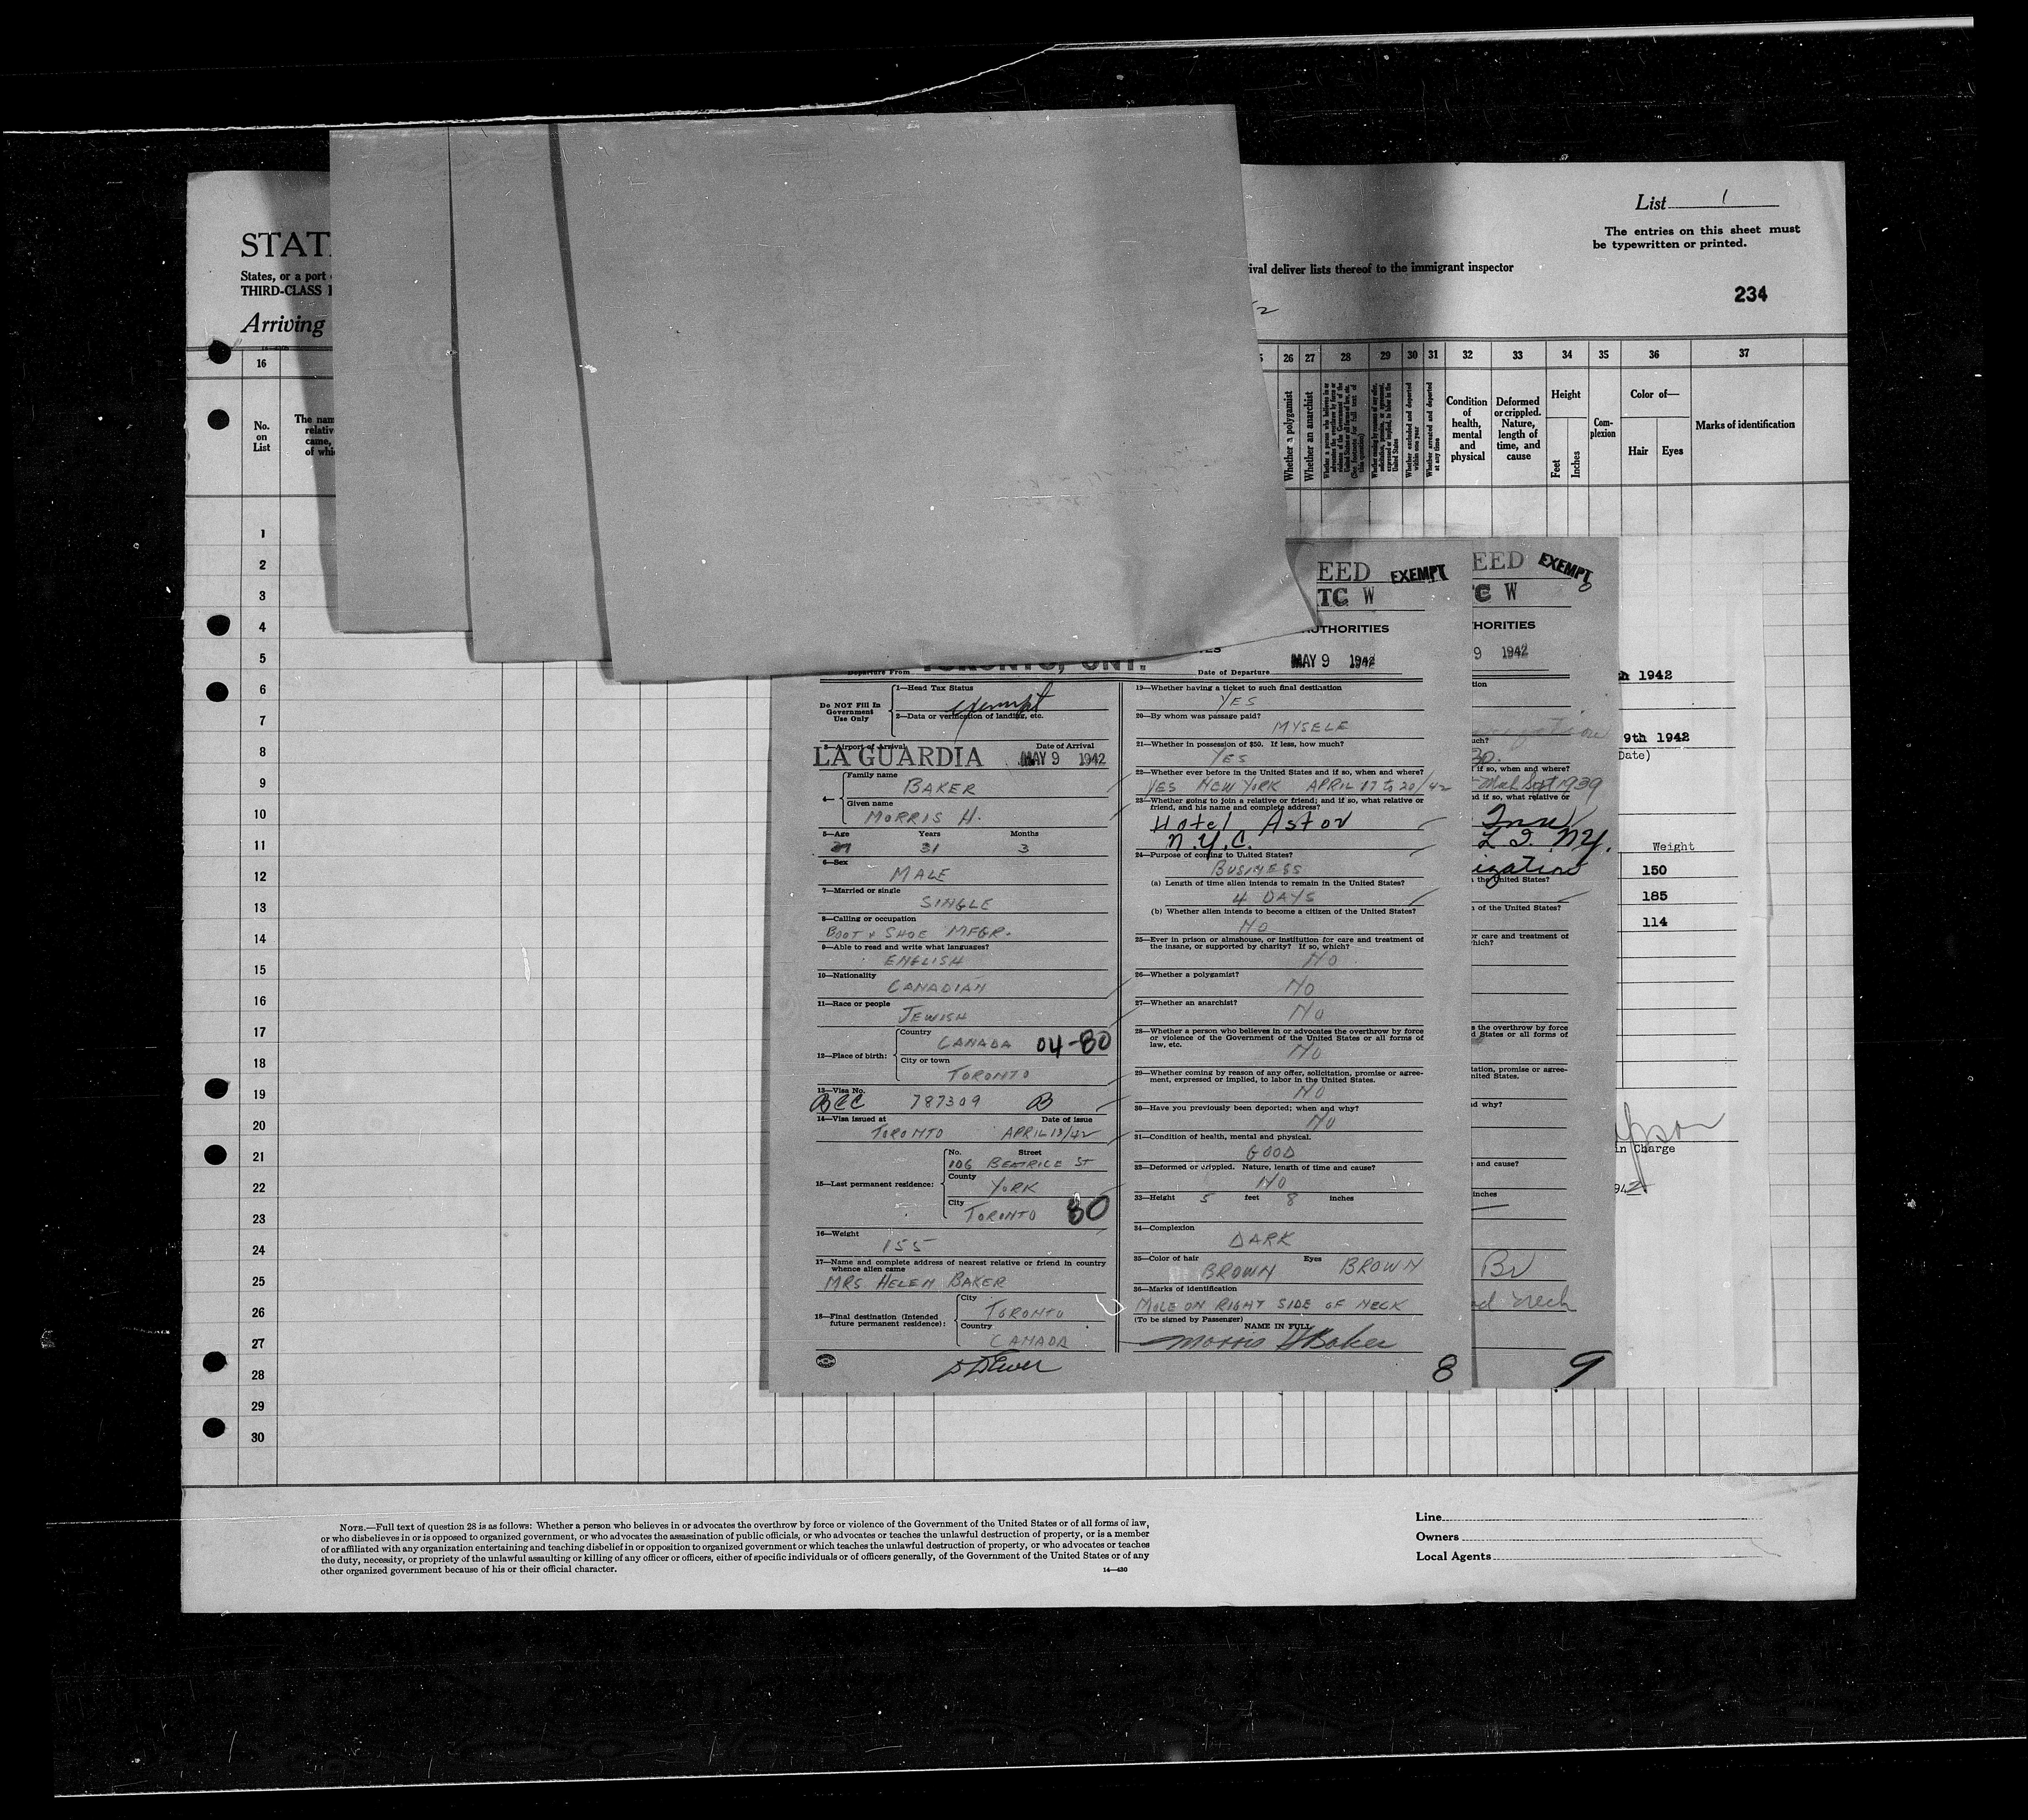 List 1
The entries on this sheet must
be typewritten or printed.
STAT
States, or a port
THIRD-CLASS
Arriving
ival deliver lists thereof to the immigrant inspector
234
16
No.
on
List
The nam
relativ
came,
of whi
26 27 28 29 30 31 32 33 34 35 36 37
Whether a polygamist
Whether an anarchist
Whether excluded and deported
within one year
Whether arrested and deported
at any time
Condition
of
health,
mental
and
physical
Deformed
or crippled.
Nature,
length of
time, and
cause
Height
Feet
Inches
Com-
plexion
Color of—
Hair Eyes
Marks of identification
1
2
3
4
5
6
7
8
9
10
11
12
13
14
15
16
17
18
19
20
21
22
23
24
25
26
27
28
29
30
EED EXEMPT
TC W
AUTHORITIES
TORONTO, ONT.
MAY 9 1942
Departure From
Date of Departure
Do NOT Fill In
Government
Use Only
1—Head Tax Status
exempt
2—Data or verification of landing, etc.
3—Airport of Arrival Date of Arrival
LA GUARDIA MAY 9 1942
4—
Family name
BAKER
Given name
MORRIS H.
5—Age Years Months
31 3
6—Sex
MALE
7—Married or single
SINGLE
8—Calling or occupation
BOOT & SHOE MFGR.
9—Able to read and write what languages?
ENGLISH
10—Nationality
CANADIAN
11—Race or people
JEWISH
12—Place of birth:
Country
CANADA 04-80
City or town
TORONTO
13—Visa No.
BCC 787309 B
14—Visa issued at Date of issue
TORONTO APRIL 13/42
15—Last permanent residence:
No. Street
106 BEATRICE ST
County
YORK
City
TORONTO 80
16—Weight
155
17—Name and complete address of nearest relative or friend in country
whence alien came
MRS HELEN BAKER
18—Final destination (Intended
future permanent residence):
City
TORONTO
Country
CANADA
19—Whether having a ticket to such final destination
YES
20—By whom was passage paid?
MYSELF
21—Whether in possession of $50. If less, how much?
YES
22—Whether ever before in the United States and if so, when and where?
YES NEW YORK APRIL 17 to 20/42
23—Whether going to join a relative or friend; and if so, what relative or
friend, and his name and complete address?
Hotel Astor
N.Y.C.
24—Purpose of coming to United States?
BUSINESS
(a) Length of time alien intends to remain in the United States?
4 DAYS
(b) Whether alien intends to become a citizen of the United States?
NO
25—Ever in prison or almshouse, or institution for care and treatment of
the insane, or supported by charity? If so, which?
NO
26—Whether a polygamist?
NO
27—Whether an anarchist?
NO
28—Whether a person who believes in or advocates the overthrow by force
or violence of the Government of the United States or all forms of
law, etc.
NO
29—Whether coming by reason of any offer, solicitation, promise or agree-
ment, expressed or implied, to labor in the United States.
NO
30—Have you previously been deported; when and why?
NO
31—Condition of health, mental and physical.
GOOD
32—Deformed or crippled. Nature, length of time and cause?
NO
33—Height 5 feet 8 inches
34—Complexion
DARK
35—Color of hair Eyes
BROWN BROWN
36—Marks of identification
MOLE ON RIGHT SIDE OF NECK
(To be signed by Passenger)
NAME IN FULL
Morris H Baker
8
EED EXEMPT
TC W
THORITIES
9 1942
tion
uch?
30.
if so, when and where?
Sept 1939
nd if so, what relative or
Inn
L.I. NY.
ization
the United States?
of the United States?
or care and treatment of
hich?
s the overthrow by force
d States or all forms of
tation, promise or agree-
nited States.
d why?
and cause?
inches
Br
neck
9
h 1942
9th 1942
Date)
Weight
150
185
114
in Charge
NOTE.—Full text of question 28 is as follows: Whether a person who believes in or advocates the overthrow by force or violence of the Government of the United States or of all forms of law,
or who disbelieves in or is opposed to organized government, or who advocates the assassination of public officials, or who advocates or teaches the unlawful destruction of property, or is a member
of or affiliated with any organization entertaining and teaching disbelief in or opposition to organized government or which teaches the unlawful destruction of property, or who advocates or teaches
the duty, necessity, or propriety of the unlawful assaulting or killing of any officer or officers, either of specific individuals or of officers generally, of the Government of the United States or of any
other organized government because of his or their official character.
14—430
Line
Owners
Local Agents